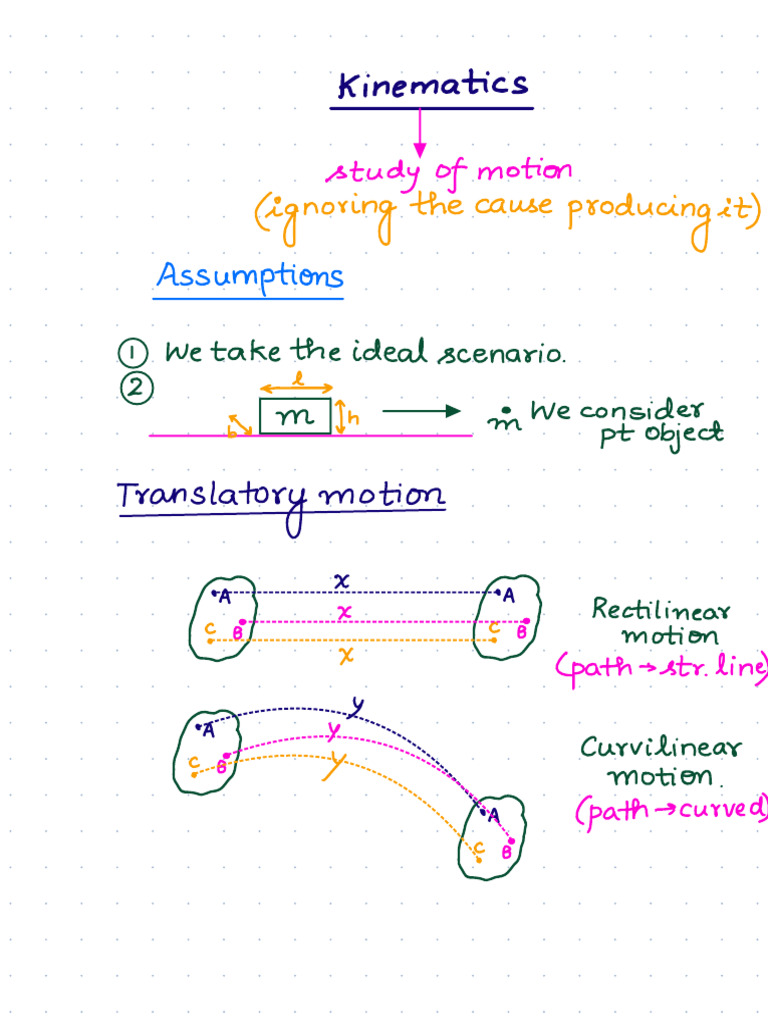 Kinematics
study of motion
(ignoring the cause producing it)
Assumptions
① We take the ideal scenario.
②
l
m
h
b
m We consider
pt object
Translatory motion
x
A
A
x
B
B
C
C
x
Rectilinear
motion
(path→str. line)
y
A
y
C
B
y
A
C
B
Curvilinear
motion.
(path→curved)